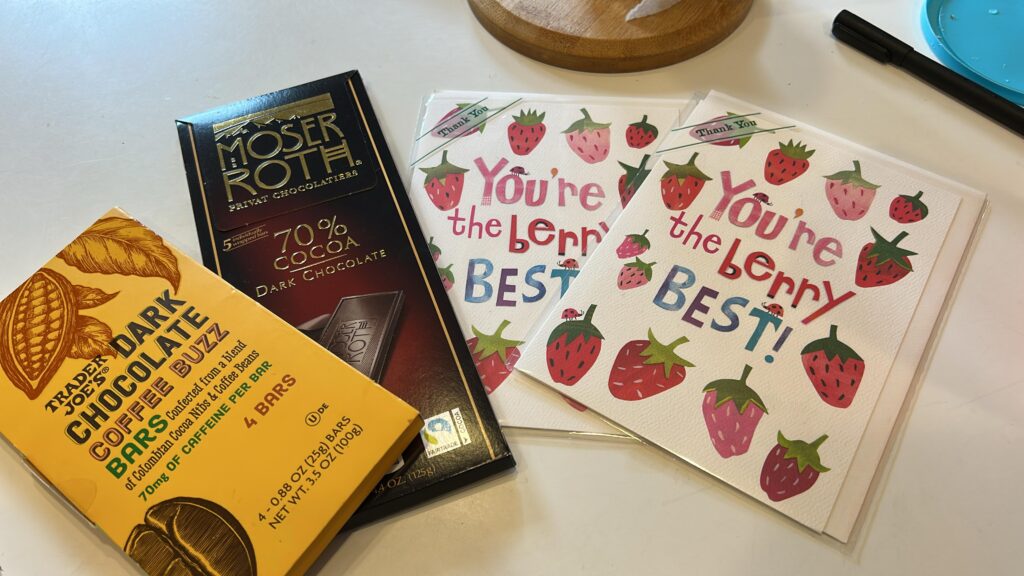 TRADER
JOE'S
DARK
CHOCOLATE
COFFEE BUZZ
BARS Confected from a blend
of Colombian Cocoa Nibs & Coffee Beans
70mg OF CAFFEINE PER BAR
4 BARS
U DE
4 - 0.88 OZ (25g) BARS
NET WT. 3.5 OZ (100g)
MOSER
ROTH®
PRIVAT CHOCOLATIERS
5 individually
wrapped bars
70%
COCOA
DARK CHOCOLATE
MOSER
ROTH
FAIRTRADE
COCOA
(125g)
Thank You
You're
the berry
BEST
Thank You
You're
the berry
BEST!